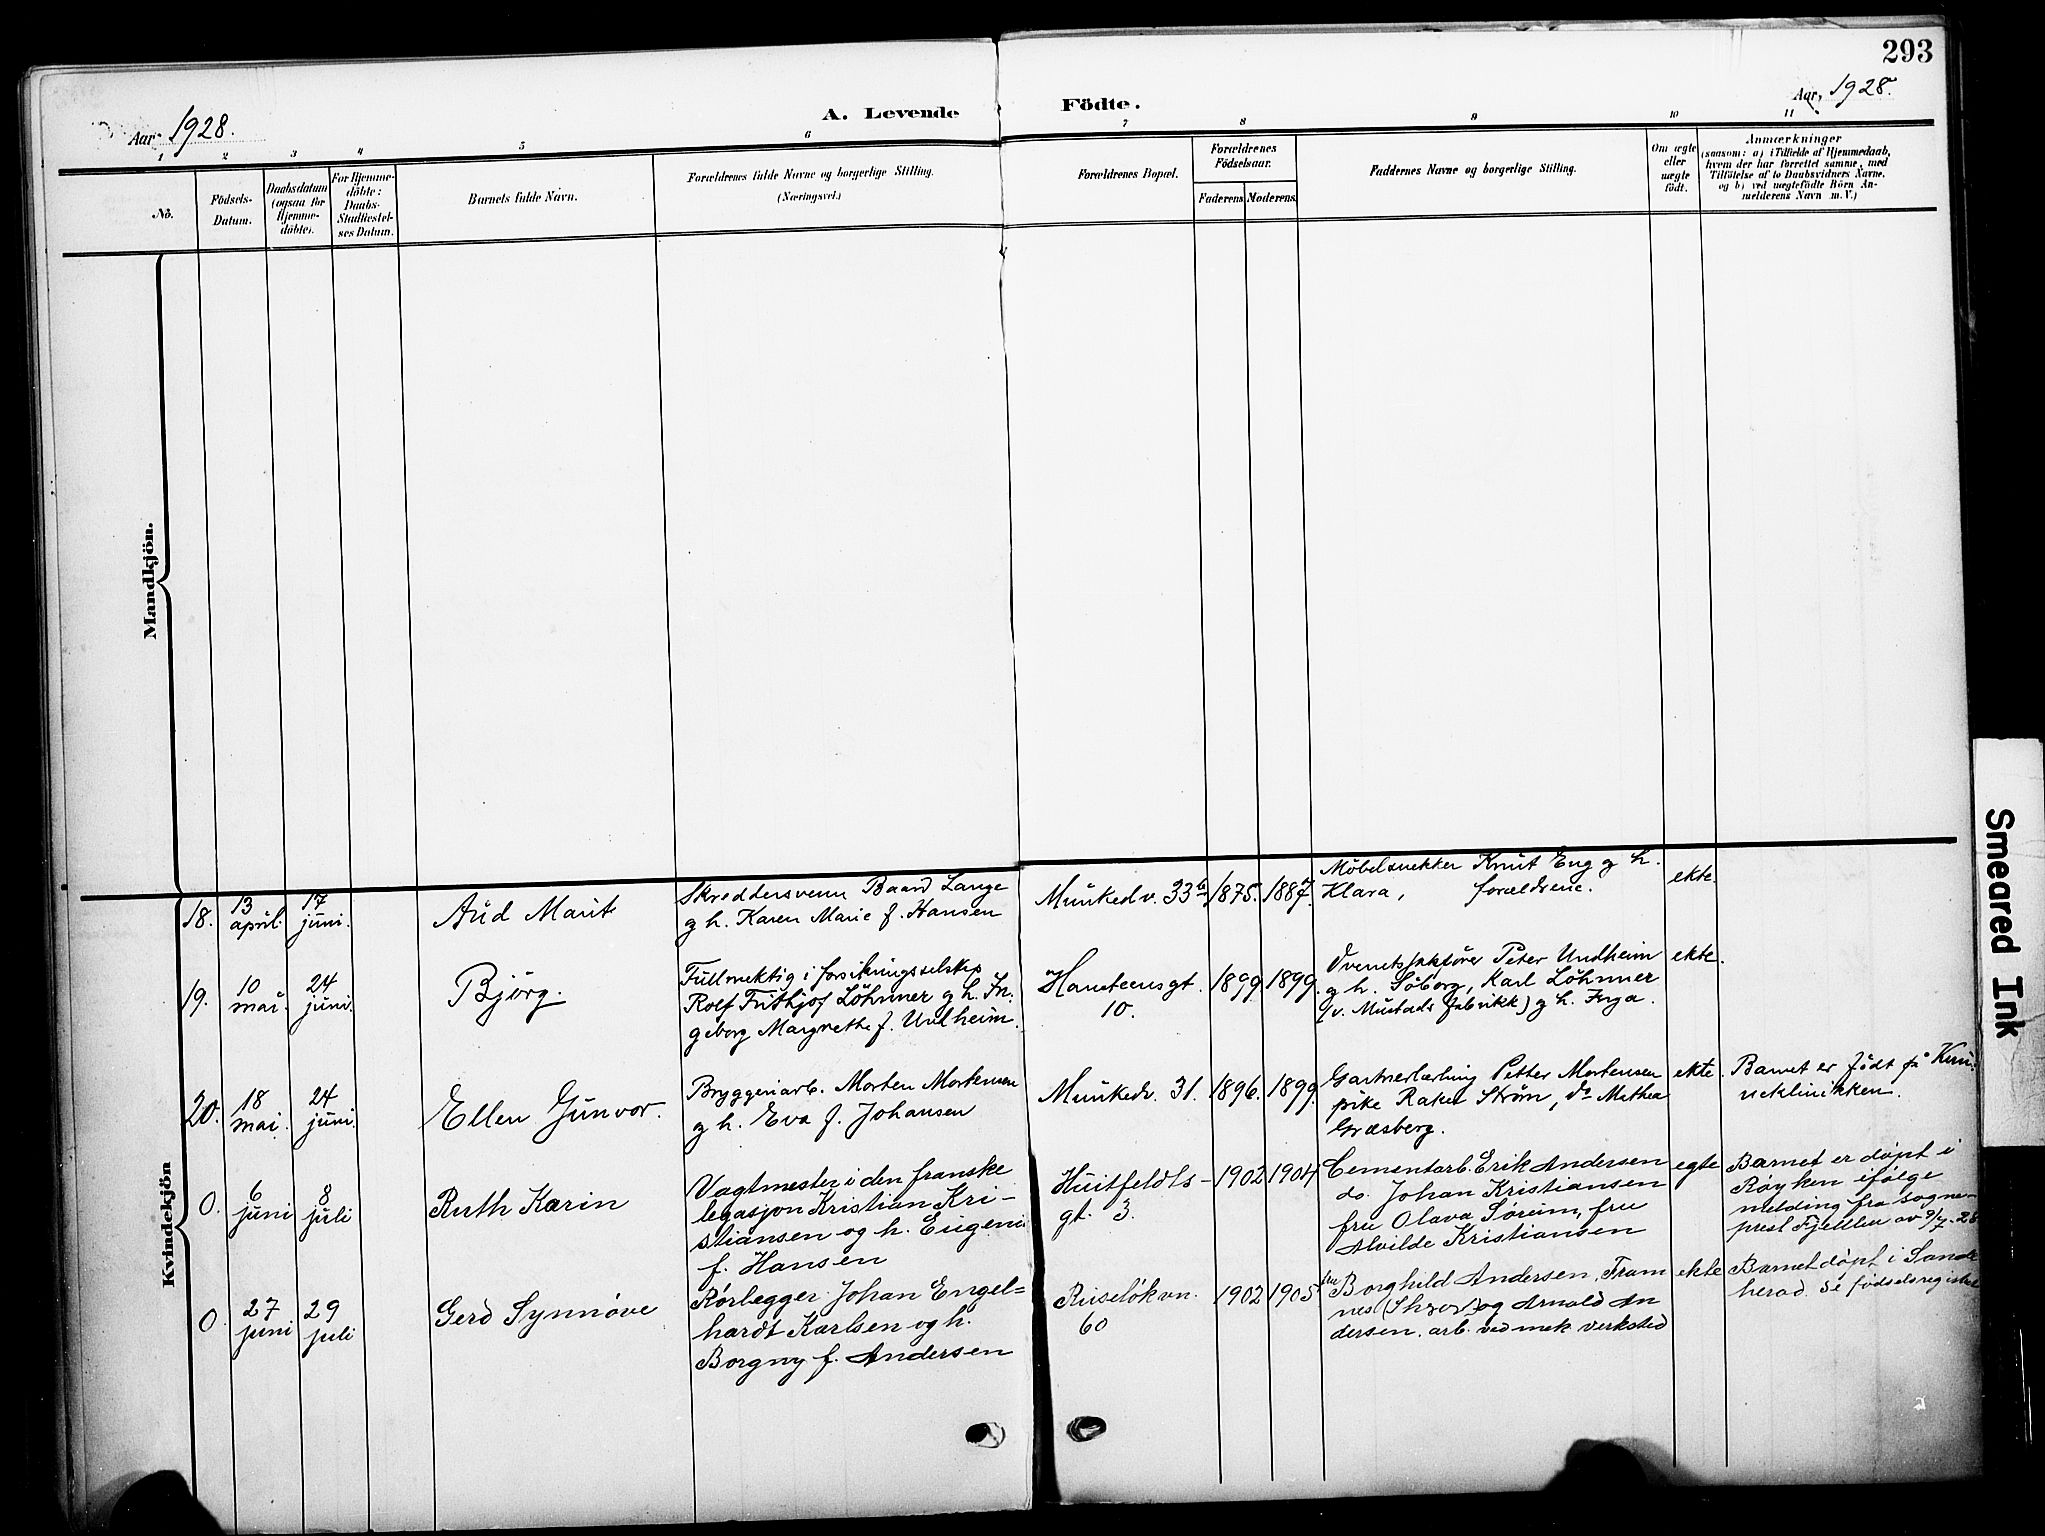 293
Aar, 1928.
A. Levende Födte.
Aar, 1928.
1 2 3 4 5 6 7 8 9 10 11
No.
Födsels-
Datum.
Daabsdatum
(ogsaa for
Hjemme-
döbte).
For Hjemme-
döbte:
Daabs-
Stadfæstel-
ses Datum.
Barnets fulde Navn.
Forældrenes fulde Navne og borgerlige Stilling.
(Næringsvei.)
Forældrenes Bopæl.
Forældrenes
Födselsaar.
Faderens. Moderens.
Faddernes Navne og borgerlige Stilling.
Om ægte
eller
uægte
födt.
Anmærkninger
(saasom: a) i Tilfælde af Hjemmedaab,
hvem der har forrettet samme, med
Tilföielse af to Daabsvidners Navne,
og b) ved uægtefödte Börn An-
melderens Navn m. V.)
Mandkjön.
Kvindekjön
18.
13
april.
17
juni.
Aud Marit
Skreddersvenn Baard Lange
g h. Karen Marie f. Hansen
Munkedv. 33b
1875.
1887.
Møbelsnekker Knut Eng g h.
Klara, forældrene.
ekte.
19.
10
mai.
24
juni.
Bjørg.
Fullmektig i forsikringsselskap
Rolf Frithjof Löhnner g h. In-
geborg Margrethe f. Undheim.
Hansteensgt.
10.
1899
1899.
Peter Undheim
g h. Söborg, Karl Löhnner
(v. Mustads fabrikk) g h. Inga.
ekte.
20.
18
mai.
24
juni.
Ellen Gunvor.
Bryggeriarb. Morten Mortensen
g h. Eva f. Johansen
Munkedv. 31.
1896.
1899.
Gartnerlærling Petter Mortensen
pike Rakel Strøm, do Mathea
Græsberg.
ekte.
Barnet er født på Kvin-
neklinikken.
0.
6
juni
8
juli
Ruth Karin
Vagtmester i den franske
legasjon Kristian Kri-
stiansen og h. Eugenie
f. Hansen
Huitfeldts-
gt. 3.
1902
1904
Cementarb. Erik Andersen
do. Johan Kristiansen
fru Olava Søreim, fru
Alvilde Kristiansen
egte
Barnet er døpt i
Røyken ifølge
melding fra sogne-
prest Fjellbu av 9/7-28
0.
27
juni
29
juli
Gerd Synnöve
Rørlegger Johan Engel=
hardt Karlsen og h.
Borgny f. Andersen
Ruseløkvn.
60
1902
1905
fru Borghild Andersen, Fram
nes og Arnold An
dersen. arb. ved mek verksted
ekte
Barnet døpt i Sande
herad. Se fødselsregistret
Smeared Ink